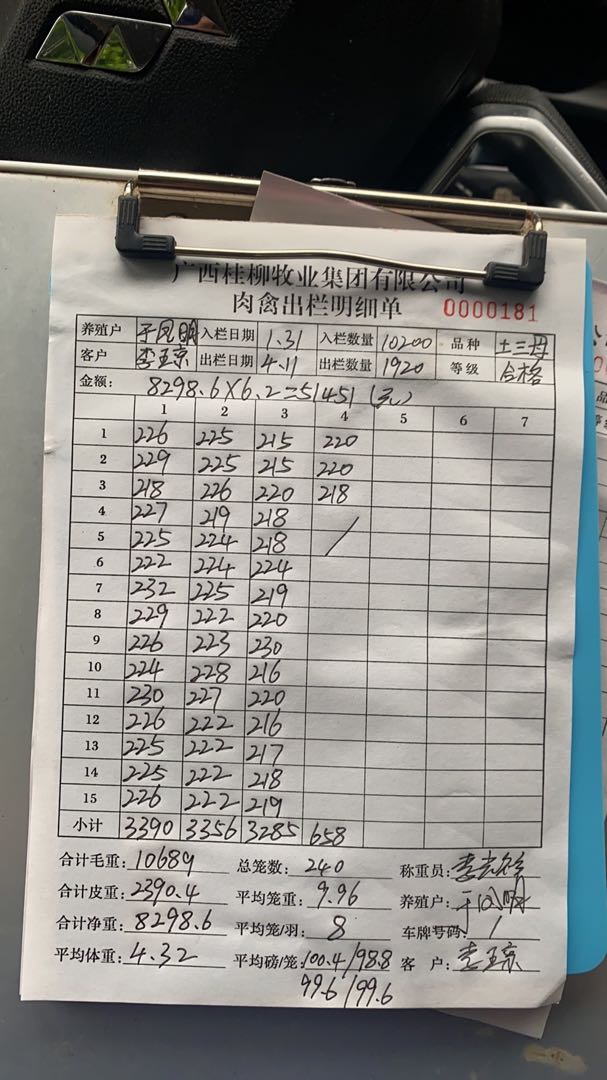 广西桂柳牧业集团有限公司
肉禽出栏明细单 0000181
养殖户 于凤明 入栏日期 1.31 入栏数量 10200 品种 土三母
客户 李玉京 出栏日期 4.11 出栏数量 1920 等级 合格
金额: 8298.6×6.2=51451(元)
1 2 3 4 5 6 7
1 226 225 215 220
2 229 225 215 220
3 218 226 220 218
4 227 219 218
5 225 224 218 /
6 222 224 224
7 232 225 219
8 229 222 220
9 226 223 230
10 224 228 216
11 230 227 220
12 226 222 216
13 225 222 217
14 225 222 218
15 226 222 219
小计 3390 3356 3285 658
合计毛重: 10689 总笼数: 240 称重员:
合计皮重: 2390.4 平均笼重: 9.96 养殖户: 于凤明
合计净重: 8298.6 平均笼/羽: 8 车牌号码: /
平均体重: 4.32 平均磅/笼: 100.4/98.8 客户: 李玉京
99.6/99.6